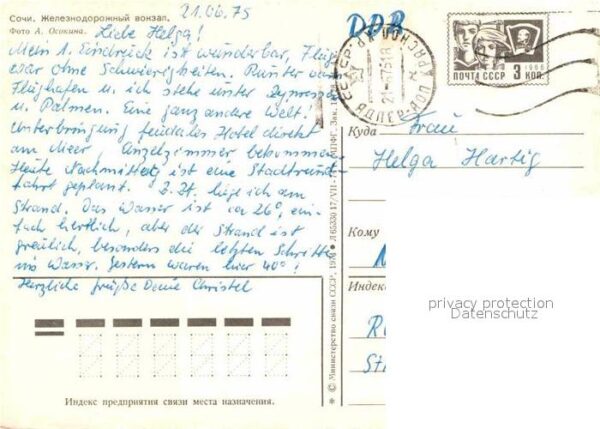 21.06.75
Сочи. Железнодорожный вокзал.
Фото А. Осокина.
Liebe Helga!
Mein 1. Eindruck ist wunderbar, Flug
war ohne Schwierigkeiten. Runter vom
Flughafen u. ich stehe unter Zypressen
u. Palmen. Eine ganz andere Welt!
Unterbringung feudales Hotel direkt
am Meer, Einzelzimmer bekommen.
Heute Nachmittag ist eine Stadtrund-
fahrt geplant. Z. Zt. liege ich am
Strand. Das Wasser ist ca 26°, ein-
fach herrlich, aber der Strand ist
greulich, besonders die letzten Schritte
ins Wasser. Gestern waren hier 40°!
Herzliche Grüße Deine Christel
Индекс предприятия связи места назначения.
© Министерство связи СССР, 1974
DDR
ПОЧТА СССР 3 КОП.
1966
Куда
Frau
Helga Hartig
Кому
Индекс
privacy protection
Datenschutz